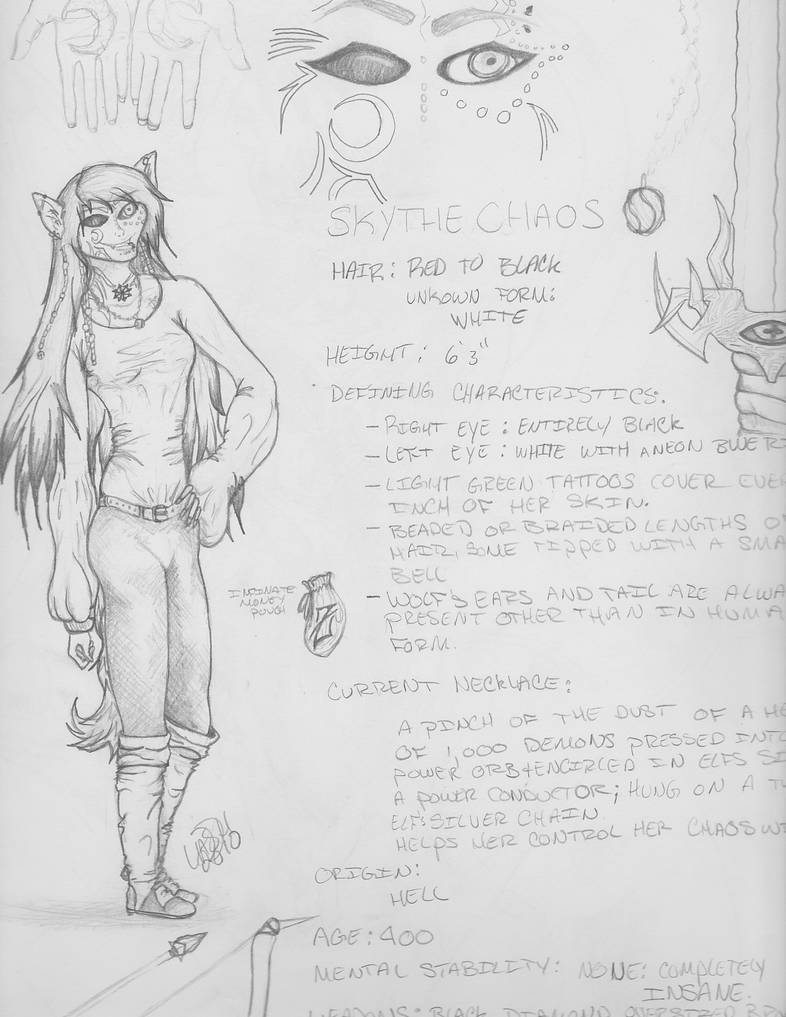 SKYTHE CHAOS
HAIR: RED TO BLACK
UNKOWN FORM:
WHITE
HEIGHT: 6'3"
DEFINING CHARACTERISTICS:
- RIGHT EYE: ENTIRELY BLACK
- LEFT EYE: WHITE WITH A NEON BLUE RI
- LIGHT GREEN TATTOOS COVER EVE
INCH OF HER SKIN.
- BEADED OR BRAIDED LENGTHS O
HAIR, SOME TIPPED WITH A SMA
BELL
- WOLF'S EARS AND TAIL ARE ALWA
PRESENT OTHER THAN IN HUMA
FORM.
INFINATE
MONEY
POUGH
CURRENT NECKLACE:
A PINCH OF THE DUST OF A HE
OF 1,000 DEMONS PRESSED INTO
POWER ORB & ENCIRCLED IN ELFS SI
A POWER CONDUCTOR; HUNG ON A T
ELF'S SILVER CHAIN.
HELPS HER CONTROL HER CHAOS W
ORIGIN:
HELL
AGE: 400
MENTAL STABILITY: NONE: COMPLETELY
INSANE.
WEAPONS: BLACK DIAMOND OVERSIZED BRO